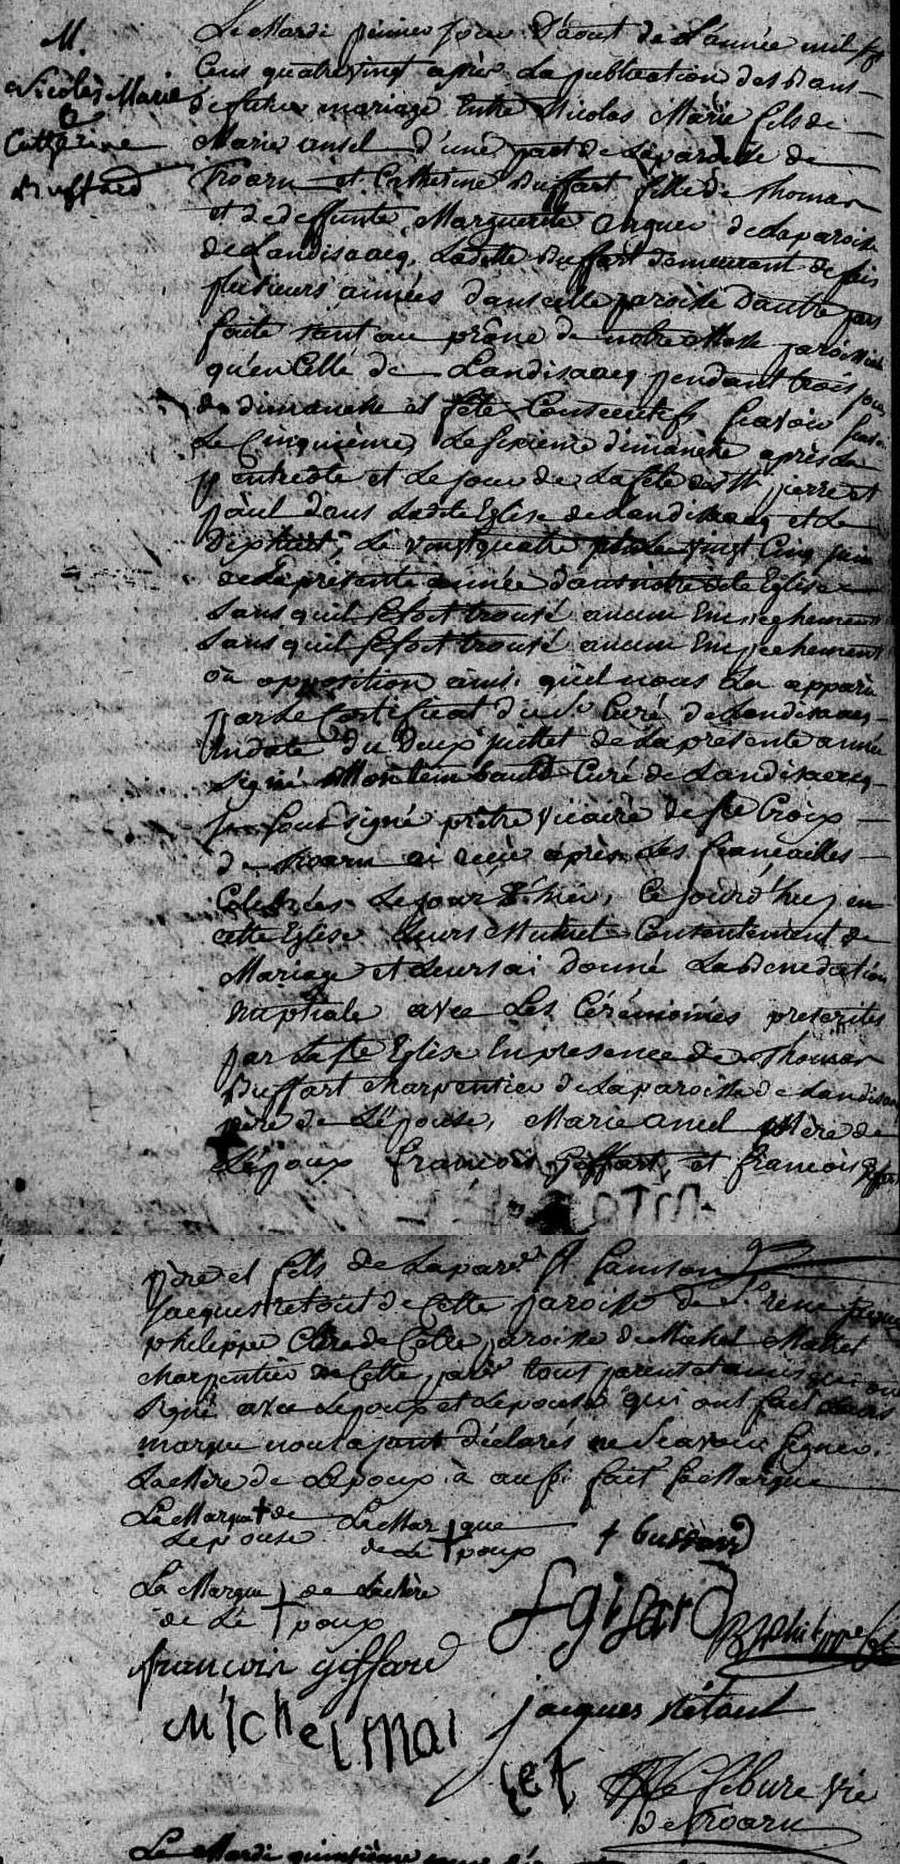 M.
Nicolas Marie
&
Catherine
Buffard
Le Mardi premier jour d'aout de L'année mil sept
Cens quatrevingt après La publication des Bans
de futur mariage Entre Nicolas Marie fils de
Marie ansel d'une part de La paroisse de
Troarn et Catherine Buffart fille de Thomas
et de deffunte Marguerite de La paroisse
de Landisaacq, Ladite Buffart demeurant depuis
plusieurs années dans cette paroisse D'autre part
faite tant au prône de notre Messe paroissiale
qu'en Celle de Landisaacq pendant trois jours
de dimanche et fête Consecutifs Scavoir
Le Cinquième, Le Sixième dimanche après La
pentecôte et Le jour de La fête des Sts pierre et
paul dans Ladite Eglise de Landisaacq et Le
Dixhuit, Le vingt quatre Le vingt Cinq juin
de La présente année dans notre dite Eglise
Sans quil se soit trouvé aucun Empechement
Sans quil se soit trouvé aucun Empechement
ou opposition ainsi qu'il nous La apparu
par Le Certificat du Sr Curé de Landisaacq
En date du deux juillet de La présente année
Signé Curé de Landisaacq
Je Soussigné prêtre vicaire de Ste Croix
de Troarn ai reçu après Les fiançailles
Celebrées Le jour d'hier, Cejourd'huy en
cette Eglise Leurs Mutuel Consentement de
Mariage et Leurs ai donné La Benediction
Nuptiale avec Les Cérémonies prescrites
par La Ste Eglise En presence de Thomas
Buffart charpentier de La paroisse de Landisaacq
père de L'épouse, Marie ansel Mère de
L'époux francois Giffart, et francois Giffart
père et fils de La paroisse St Samson
Jacques retout de Cette paroisse de Sr rene
philippe Clerc de Cette paroisse de Michel Mallet
charpentier de Cette paroisse tous parents et amis qui ont
Signé avec Lepoux et Lepouse qui ont fait Leurs
marque nous ayant déclarés ne Scavoir Signer.
La Mère de Lepoux à aussi fait Sa Marque
La Marque de
Lepouse
La Marque
de Lepoux
La Marque de La Mère
de Lépoux
francoin giffard
f gifard
Michel Mal
let
jacques Retout
Le febure Vic
De Troarn
Le Mardi quinzième